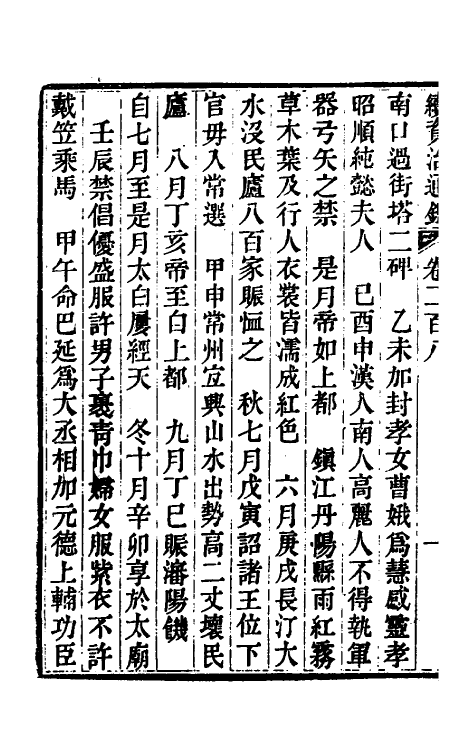 續資治通鑑 卷二百八 一
南口過街塔二碑　乙未加封孝女曹娥爲慧感靈孝
昭順純懿夫人　已酉申漢人南人高麗人不得執軍
器弓矢之禁　是月帝如上都　鎭江丹陽縣雨紅霧
草木葉及行人衣裳皆濡成紅色　六月庚戌長汀大
水沒民廬八百家賑恤之　秋七月戊寅詔諸王位下
官毋入常選　甲申常州宜興山水出勢高二丈壞民
廬　八月丁亥帝至自上都　九月丁巳賑瀋陽饑
自七月至是月太白屢經天　冬十月辛卯享於太廟
壬辰禁倡優盛服許男子裹靑巾婦女服紫衣不許
戴笠乘馬　甲午命巴延爲大丞相加元德上輔功臣